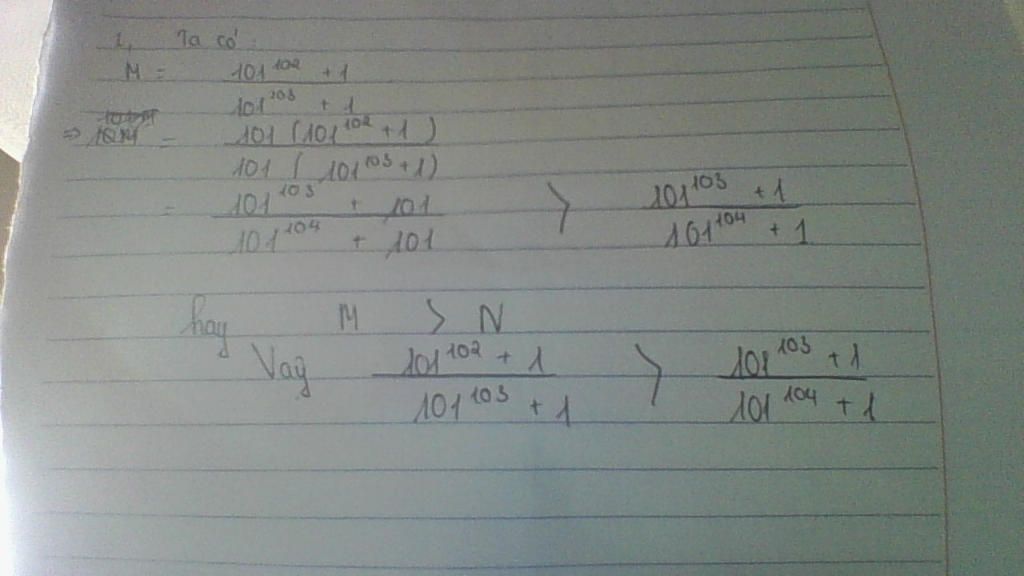 1, Ta có:
M = 101^102 + 1
101^103 + 1
⇒ 10M = 101 (101^102 + 1)
101 (101^103 + 1)
= 101^103 + 101 > 101^103 + 1
101^104 + 101 101^104 + 1
hay M > N
Vaỹ 101^102 + 1 > 101^103 + 1
101^103 + 1 101^104 + 1